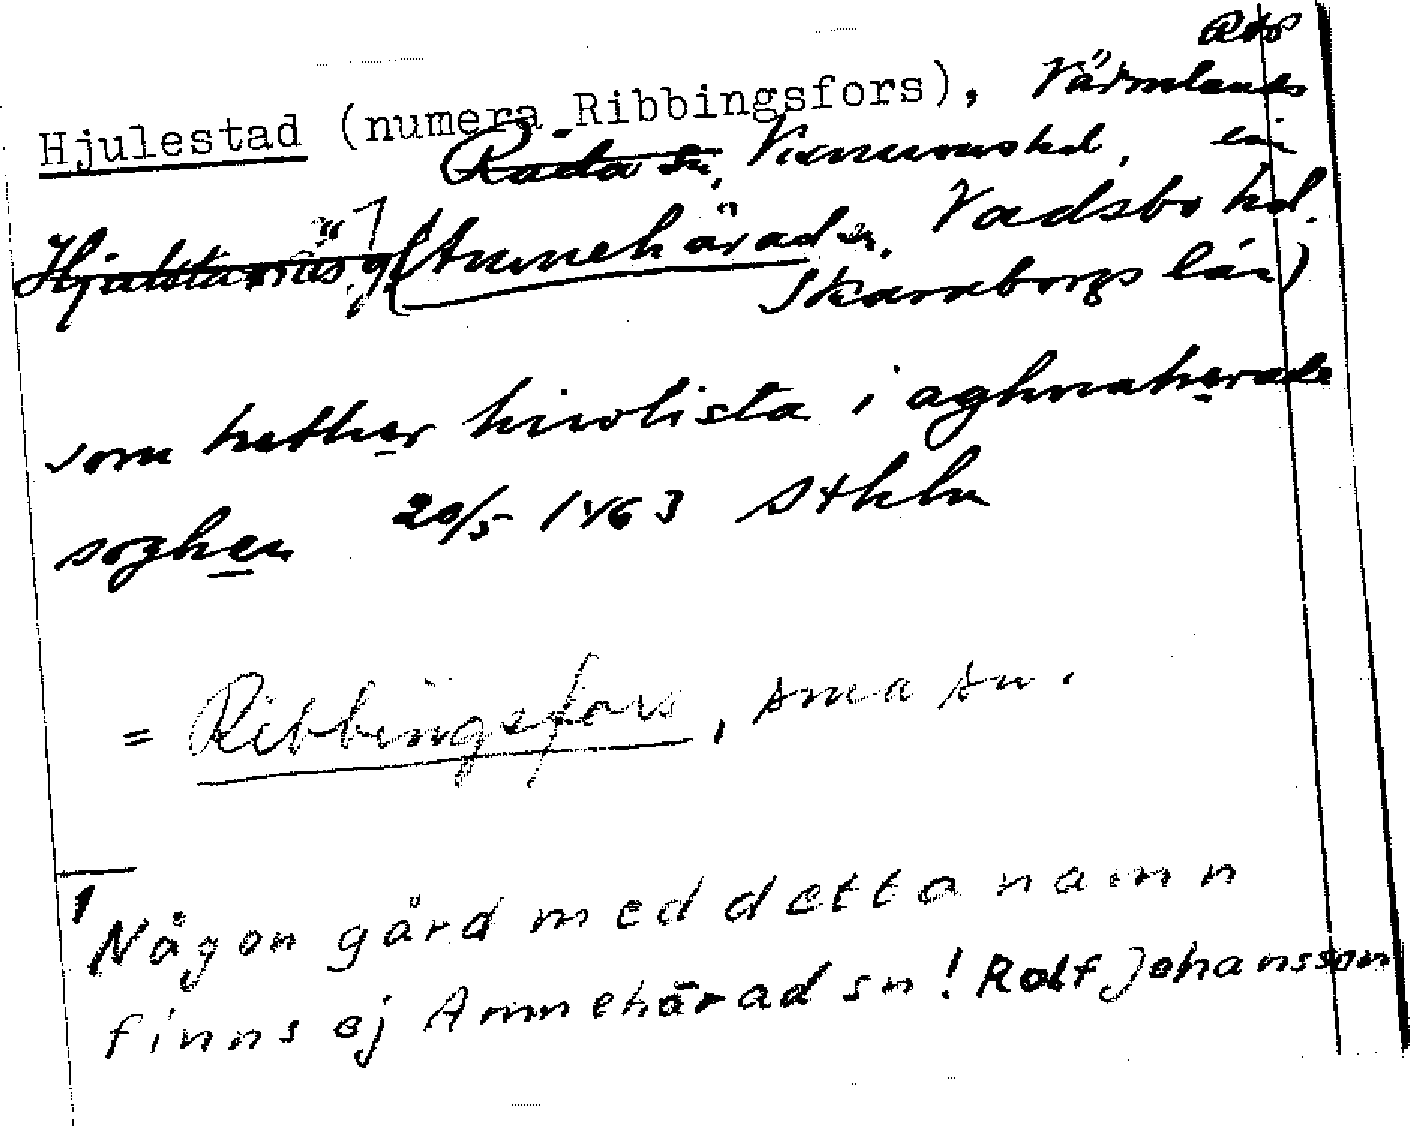 Hjulestad (numera Ribbingsfors), Värmlands
Råda sn, Visnums hd, län
(Amnehärad sn, Vadsbo hd.
Skaraborgs län)
som hether hiwlista i aghnaherade
soghen 20/5 1463 Sthlm
= Ribbingsfors, sma sn.
1 Någon gård med detta namn
finns ej Amnehärad sn! Rolf Johansson